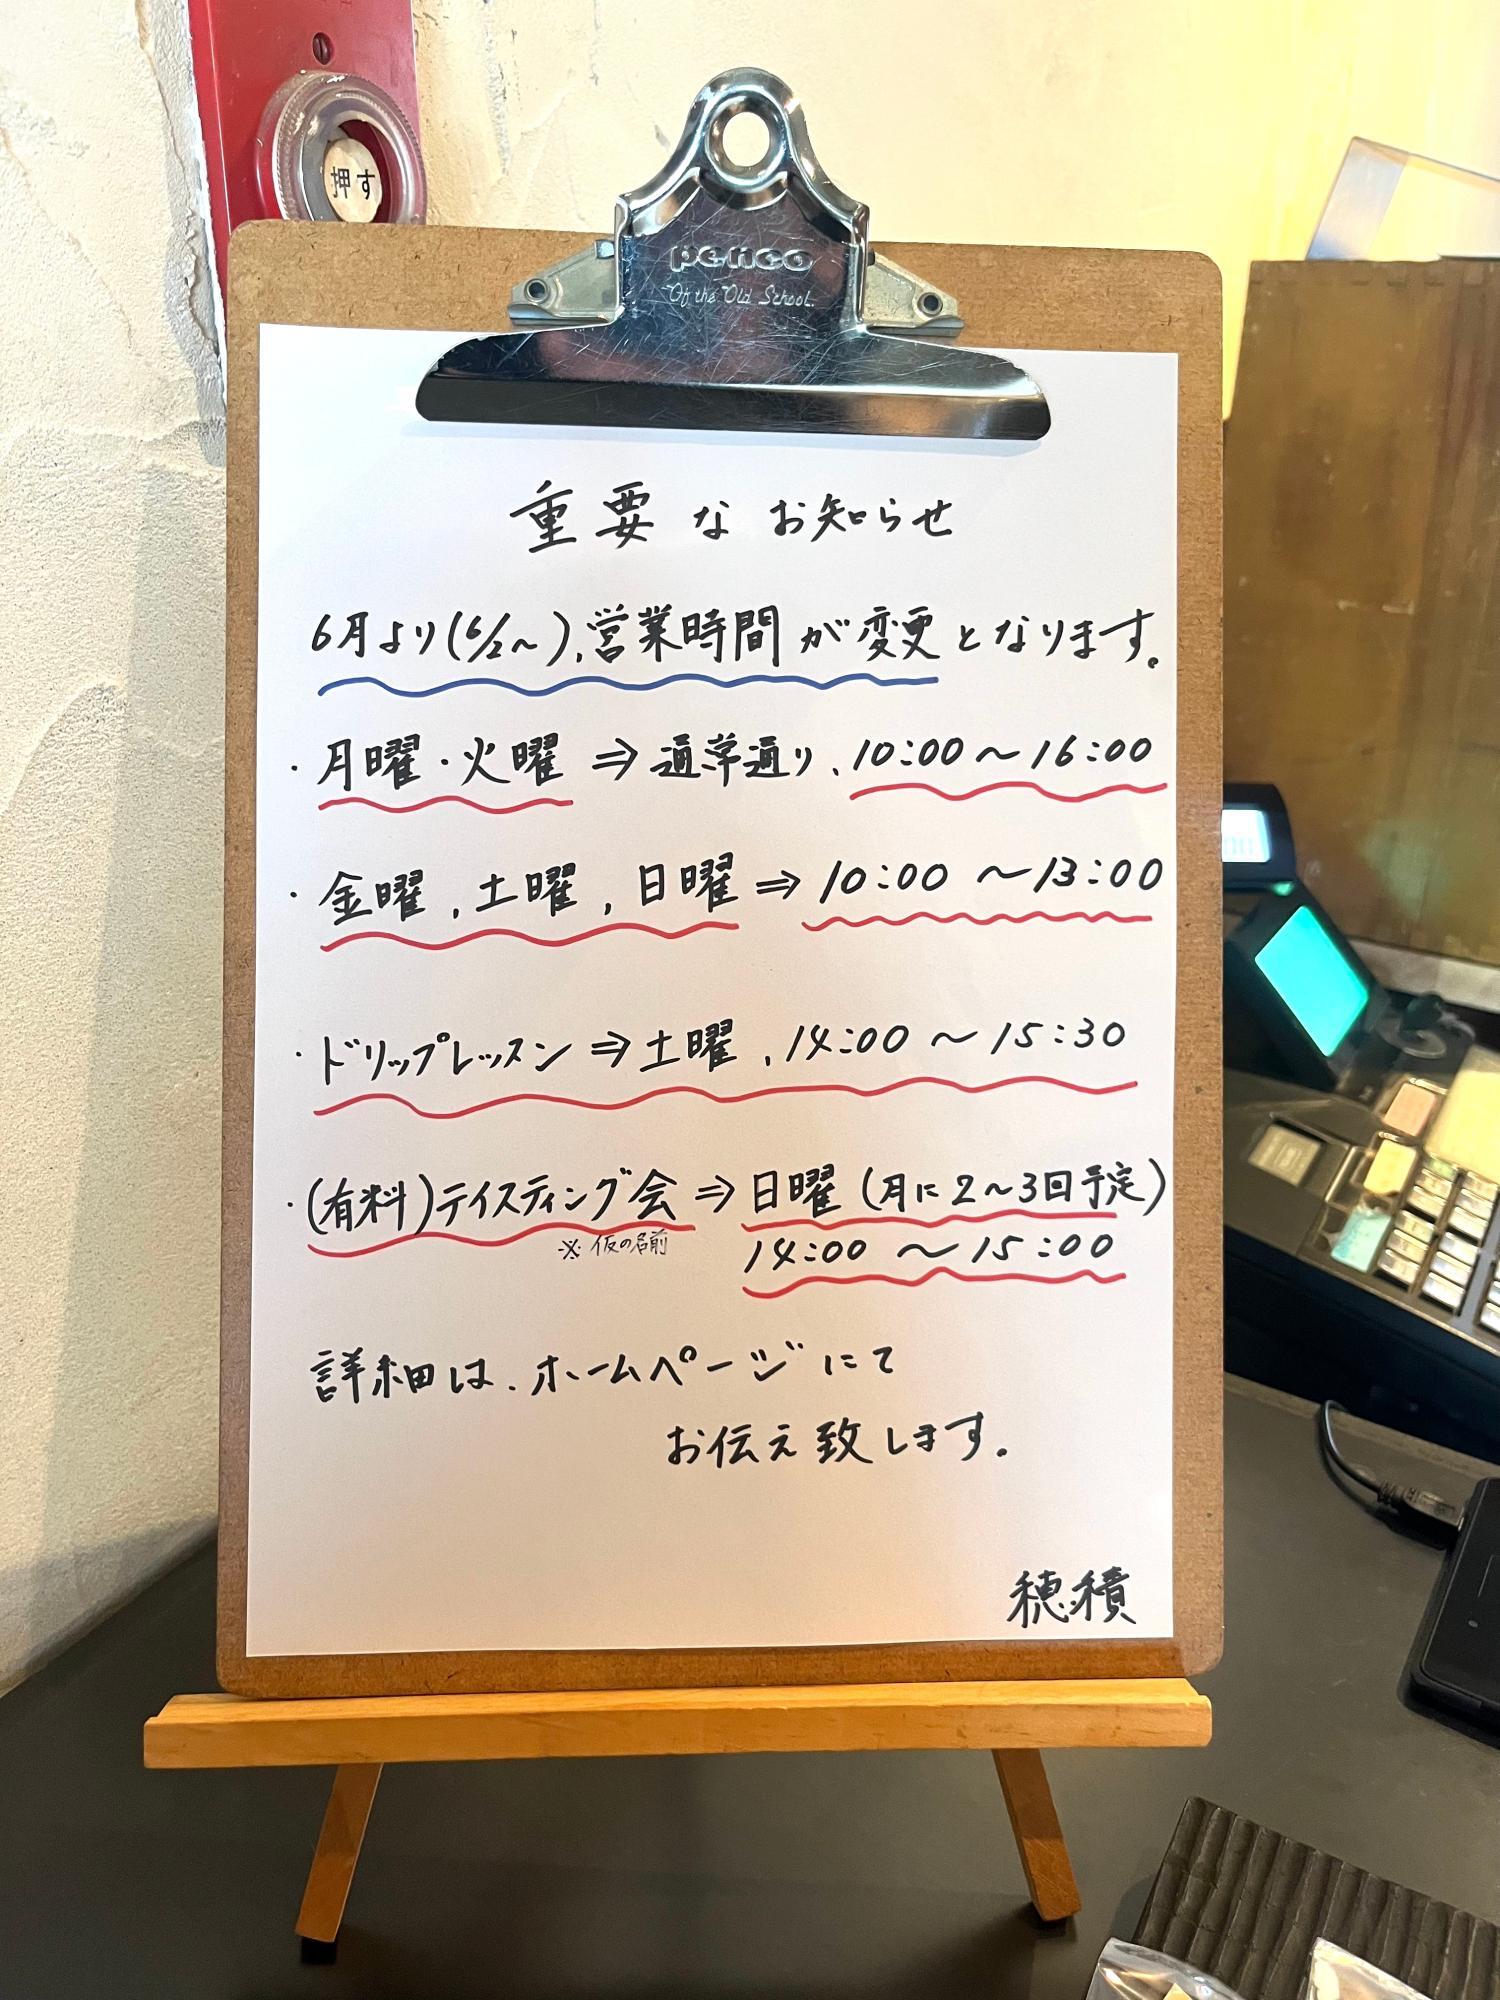 押す
penco
Of the Old School.
重要なお知らせ
6月より(6/2~)、営業時間が変更となります。
・月曜・火曜⇒通常通り、10:00~16:00
・金曜、土曜、日曜⇒10:00~13:00
・ドリップレッスン⇒土曜、14:00~15:30
・(有料)テイスティング会⇒日曜(月に2~3回予定)
※仮の名前
14:00~15:00
詳細は、ホームページにて
お伝え致します。
穂積